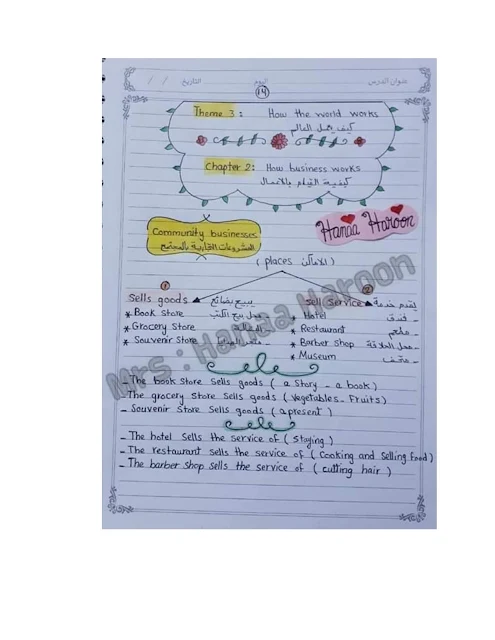 عنوان الدرس اليوم التاريخ / /
14
Theme 3: How the world works
كيف يعمل العالم
Chapter 2: How business works
كيفية القيام بالأعمال
Community businesses
المشروعات التجارية بالمجتمع
Hanaa Haroon
(places الأماكن)
1 2
Sells goods يبيع بضائع
* Book Store محل بيع الكتب
* Grocery Store البقالة
* Souvenir Store متجر الهدايا
Sell Service يقدم خدمة
* Hotel - فندق
* Restaurant - مطعم
* Barber Shop - محل الحلاقة
* Museum - متحف
Mrs : Hanaa Haroon
- The book store sells goods ( a story - a book )
- The grocery store sells goods ( vegetables - Fruits )
- Souvenir store sells goods ( apresent )
- The hotel sells the service of ( staying )
- The restaurant sells the service of ( Cooking and Selling Food )
- The barber shop sells the service of ( cutting hair )